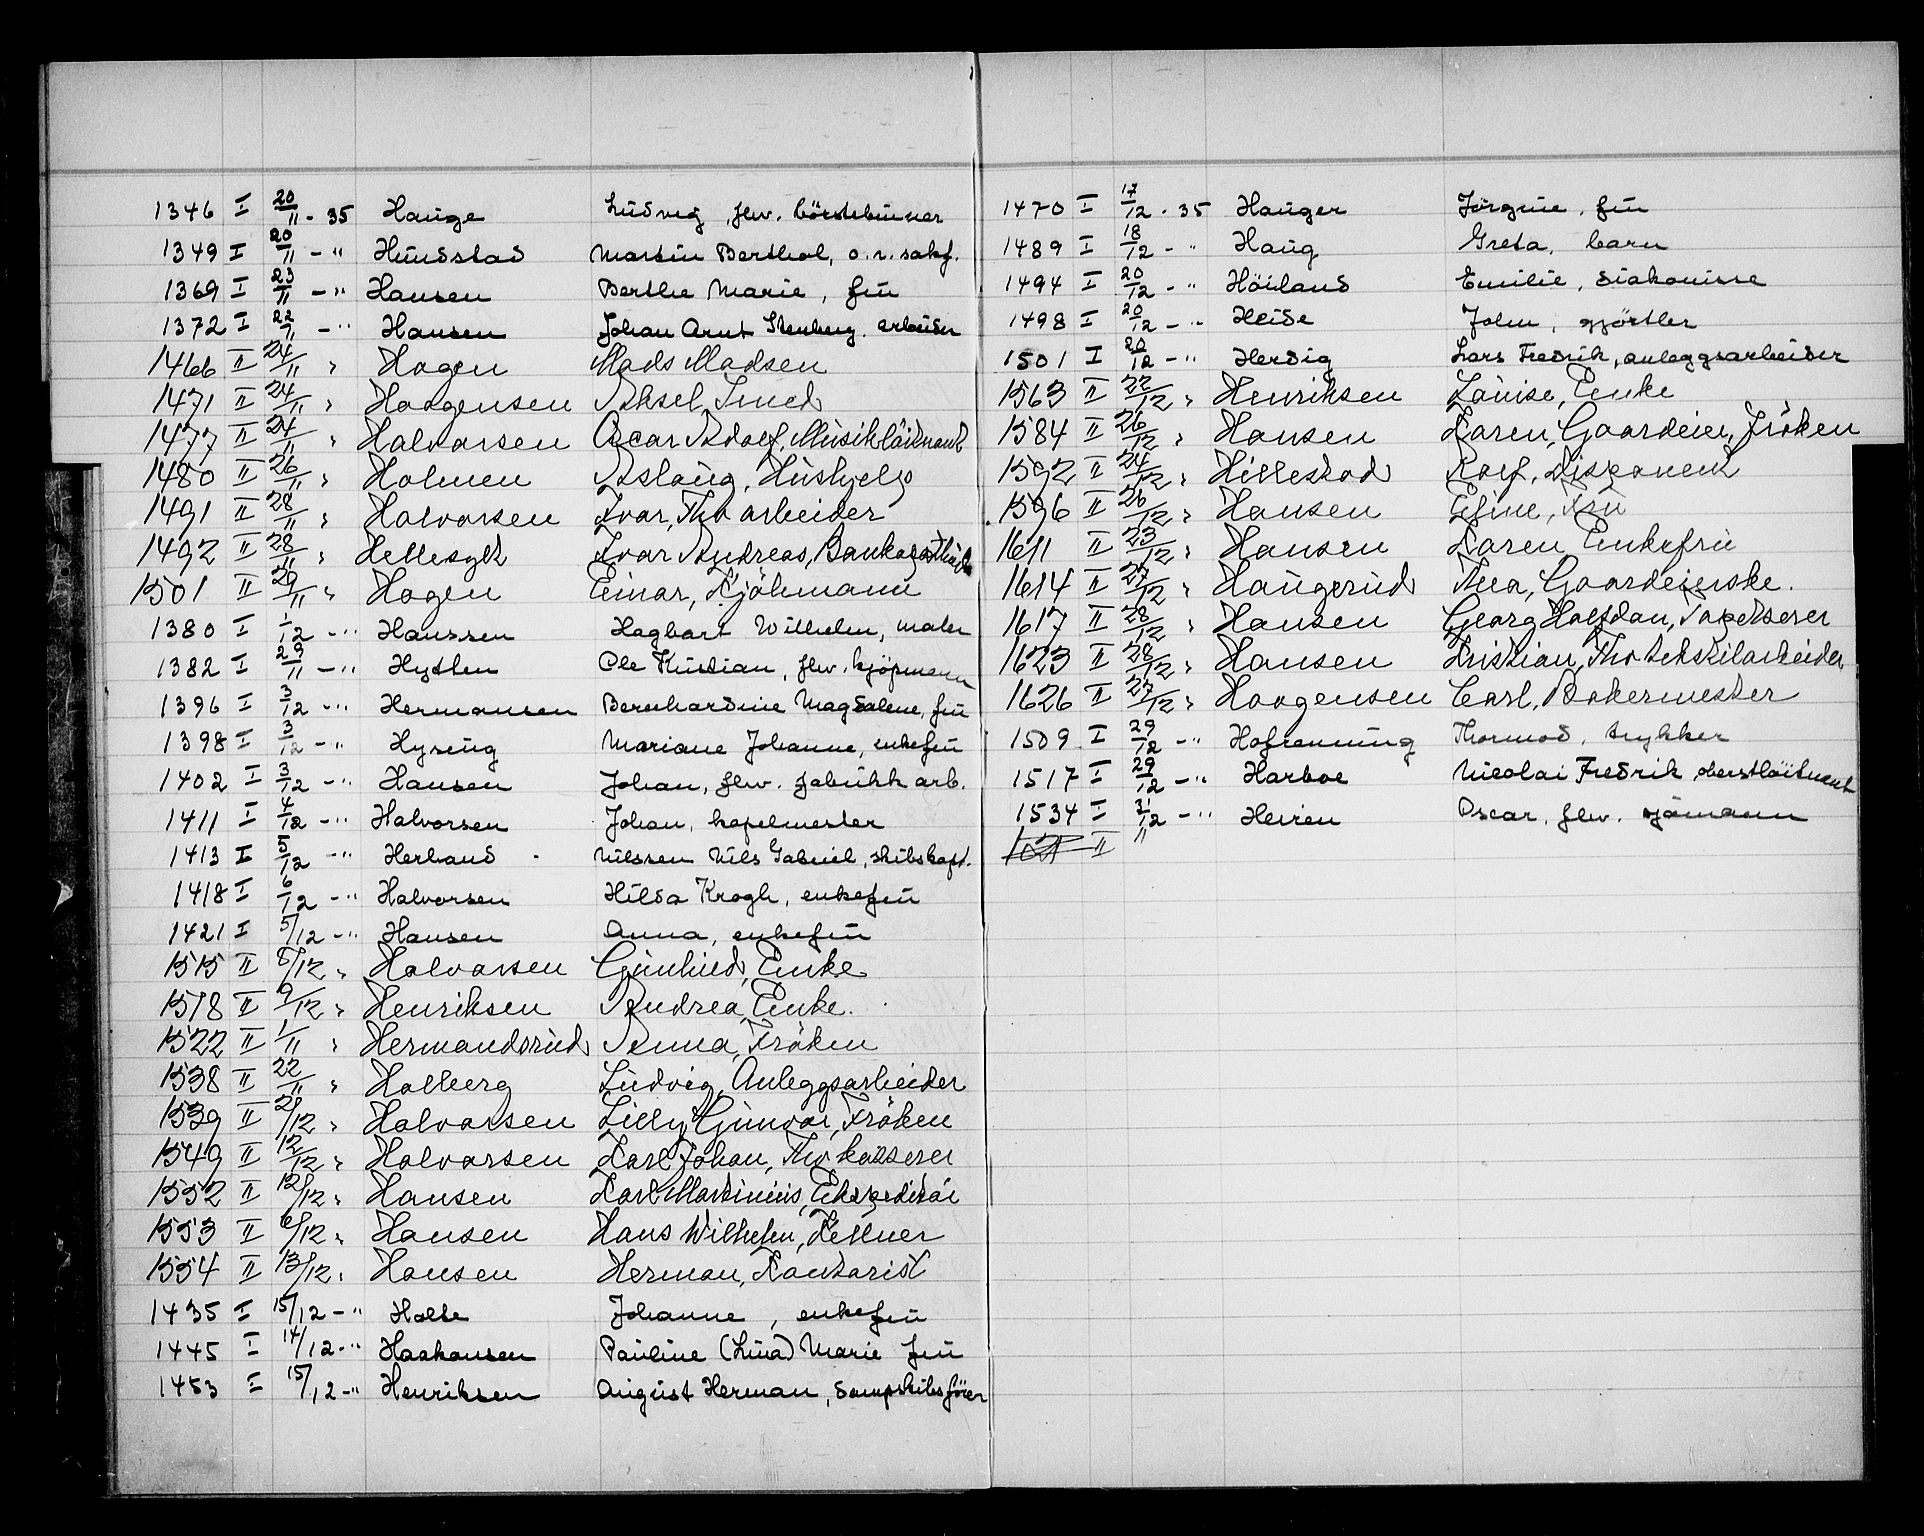 1346 I 20/11 - 35 Hauge Ludvig, fhv. börstebinner
1349 I 20/11 - " Hundstad Martin Berthol, o.r. sakf.
1369 I 23/11 - " Hansen Berthe Marie, fru
1372 I 22/11 - " Hansen Johan Arnt Stenberg. arbeider
1466 II 24/11 " Hagen Mads Madsen
1471 II 24/11 " Haagensen Aksel Trued
1477 II 24/11 " Halvorsen Oscar Adolf, Musiklöitnant
1480 II 26/11 " Holmen Aslaug, Hushjelp
1491 II 28/11 " Halvorsen Ivar, Fhv arbeider
1492 II 28/11 " Hellesylt Ivar Andreas,
1501 II 29/11 " Hagen Einar, Kjöbmann
1380 I 1/12 - " Hanssen Hagbart Wilhelm, maler
1382 I 29/11 - " Hytten Ole Kristian, fhv. kjöpmann
1396 I 3/12 - " Hermansen Bernhardine Magdalene, fru
1398 I 3/12 - " Hysing Mariane Johanne, enkefru
1402 I 3/12 - " Hansen Johan, fhv. fabrikk arb.
1411 I 4/12 - " Halvorsen Johan, kapelmester
1413 I 5/12 - " Herland Nilssen Nils Gabriel, skibskapt.
1418 I 6/12 - " Halvorsen Hilda Krogh, enkefru
1421 I 5/12 - " Hansen Anna, enkefru
1515 II 8/12 " Halvorsen Gunhild, Enke
1518 II 9/12 " Henriksen Andrea, Enke.
1522 II 1/11 " Hermandsrud Anna, Fröken
1538 II 22/11 " Holberg Ludvig, Anleggsarbeider
1539 II /12 " Halvorsen Lilly Gunvor, Fröken
1549 II 12/12 " Halvorsen Karl Johan, Fhv kasserer
1552 II 12/12 " Hansen Karl Martinius, Ekspeditör
1553 II 6/12 " Hansen Hans Wilhelm, Kellner
1554 II 13/12 " Hansen Herman, Kontorist
1435 I 15/12 - " Holte Johanne, enkefru
1445 I 14/12 - " Haakansen Pauline (Lina) Marie fru
1453 I 15/12 - " Henriksen August Herman, dampskibsförer
1470 I 17/12 - 35 Hauger Jörgine, fru
1489 I 18/12 - " Haug Greta, barn
1494 I 20/12 - " Höiland Emilie, diakonisse
1498 I 20/12 - " Heide John, gjörtler
1501 I 20/12 - " Herdig Lars Fredrik, anleggsarbeider
1563 II 22/12 " Henriksen Louise, Enke
1584 II 26/12 " Hansen Karen, Gaardeier, Fröken
1592 II 24/12 " Hillestad Rolf, Disponent
1596 II 26/12 " Hansen Efine, Fru
1611 II 23/12 " Hansen Karen Enkefru
1614 II 27/12 " Haugerud Thea, Gaardeierske.
1617 II 28/12 " Hansen Georg Halfdan, Tapetserer
1623 II 28/12 " Hansen Kristian, Fhv tekstilarbeider
1626 II 27/12 " Haagensen Carl, Bakermester
1509 I 29/12 - " Hofrenning Thormod, trykker
1517 I 29/12 - " Harboe Nicolai Fredrik, oberstlöitnant
1534 I 31/12 - " Heiren Oscar, fhv. sjömann
II "